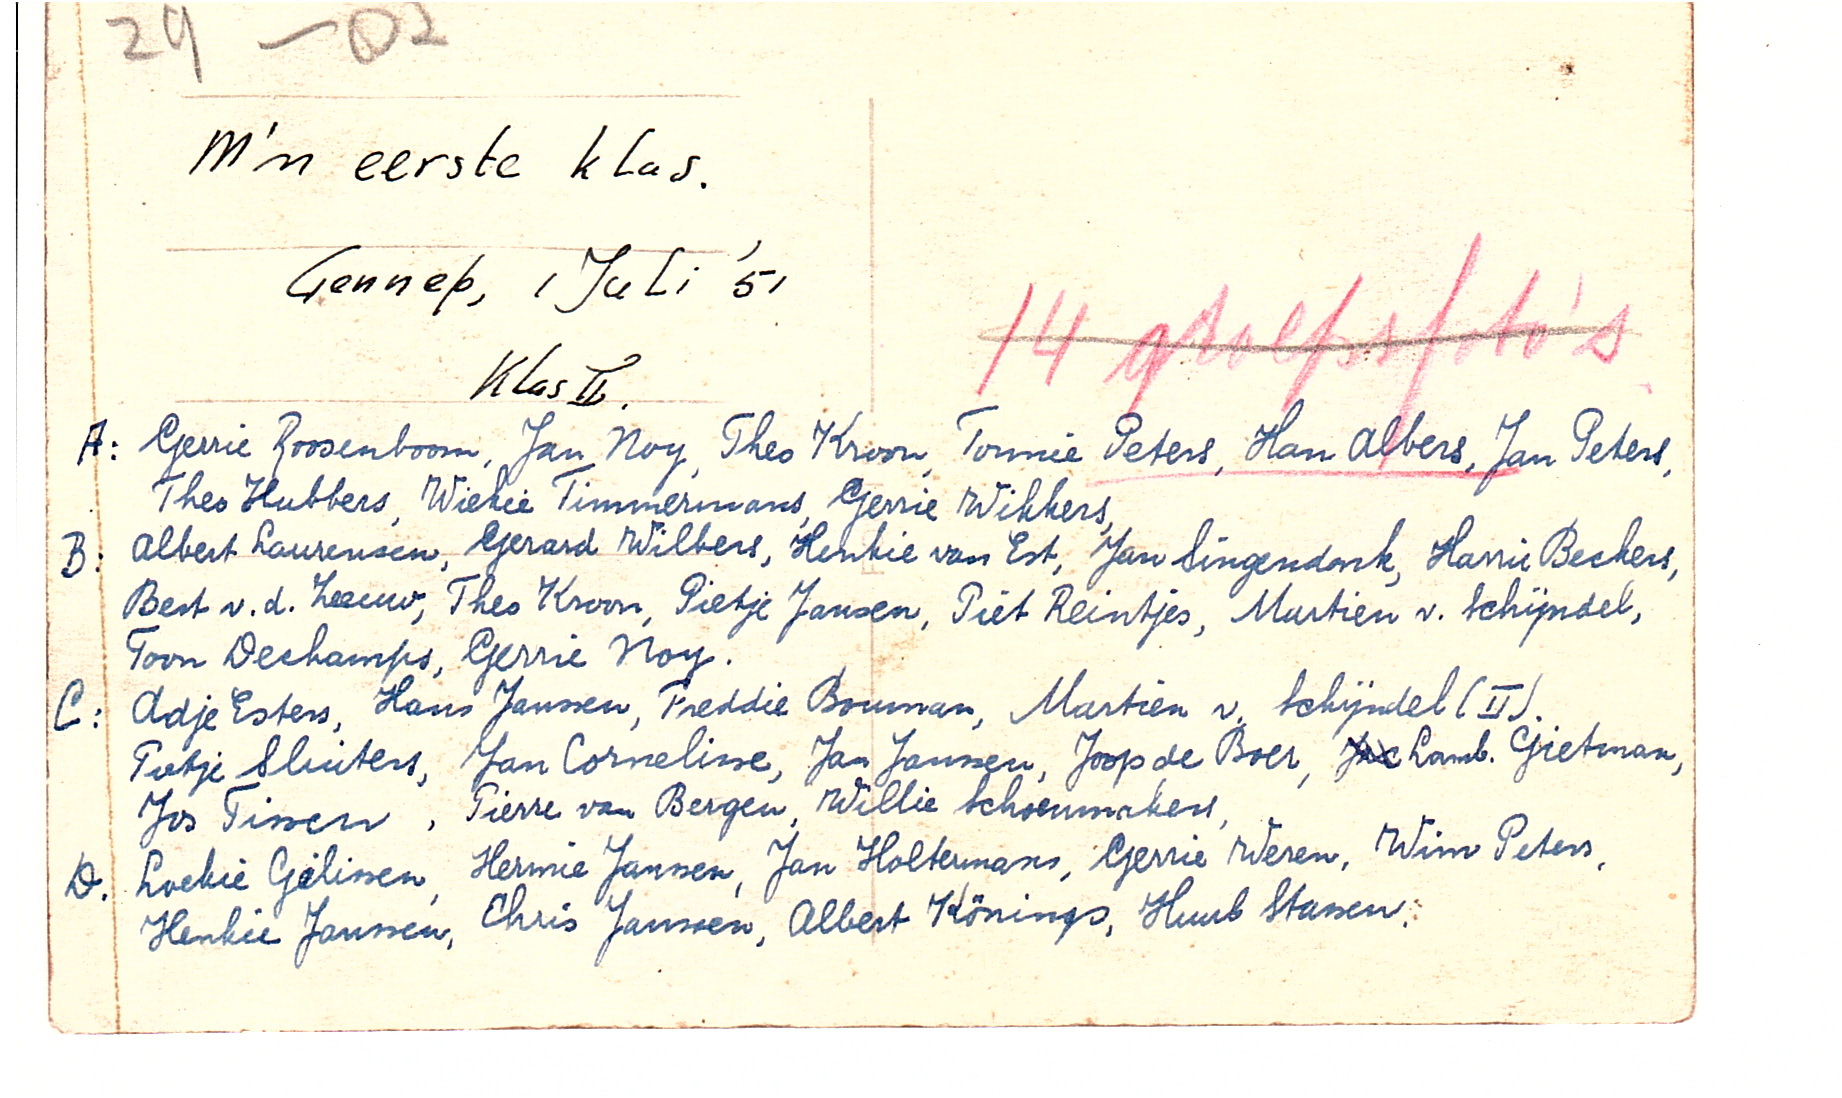 29 - 02
M'n eerste klas.
Gennep, 1 Juli '51
Klas II.
14 groepsfoto's.
A: Gerrie Roosenboom, Jan Noy, Theo Kroon, Tonnie Peters, Han Albers, Jan Peters,
Theo Hubbers, Wiekie Timmermans, Gerrie Wikkers,
B: Albert Laurensen, Gerard Wilbers, Henkie van Est, Jan Singendonk, Harrie Beckers,
Bert v.d. Zeeuw, Theo Kroon, Pietje Jansen, Piet Reintjes, Martien v. Schijndel,
Toon Dechamps, Gerrie Noy.
C: Adje Esters, Hans Janssen, Freddie Bouman, Martien v. Schijndel (II).
Pietje Sluiters, Jan Cornelisse, Jan Janssen, Joop de Boer, Lamb. Gietman,
Jos Tissen, Pierre van Bergen, Willie Schoenmakers,
D. Loekie Gelissen, Hermie Janssen, Jan Holtermans, Gerrie Weren, Wim Peters,
Henkie Janssen, Chris Janssen, Albert Könings, Huub Stassen.